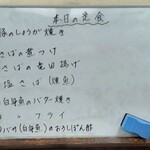 本日の定食
豚のしょうが焼き
さばの煮つけ
さばの竜田揚げ
塩さば（焼魚）
（白身魚）のバター焼き
〃 フライ
（白身魚）のおろしぽん酢